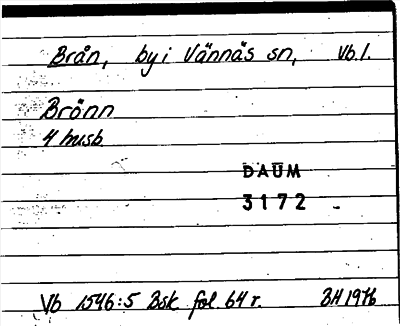 Brån, by i Vännäs sn, Vb.l.
Brönn
4 husb.
DAUM
3172
Vb 1546:5 Bsk fol. 64 r. BH 1976